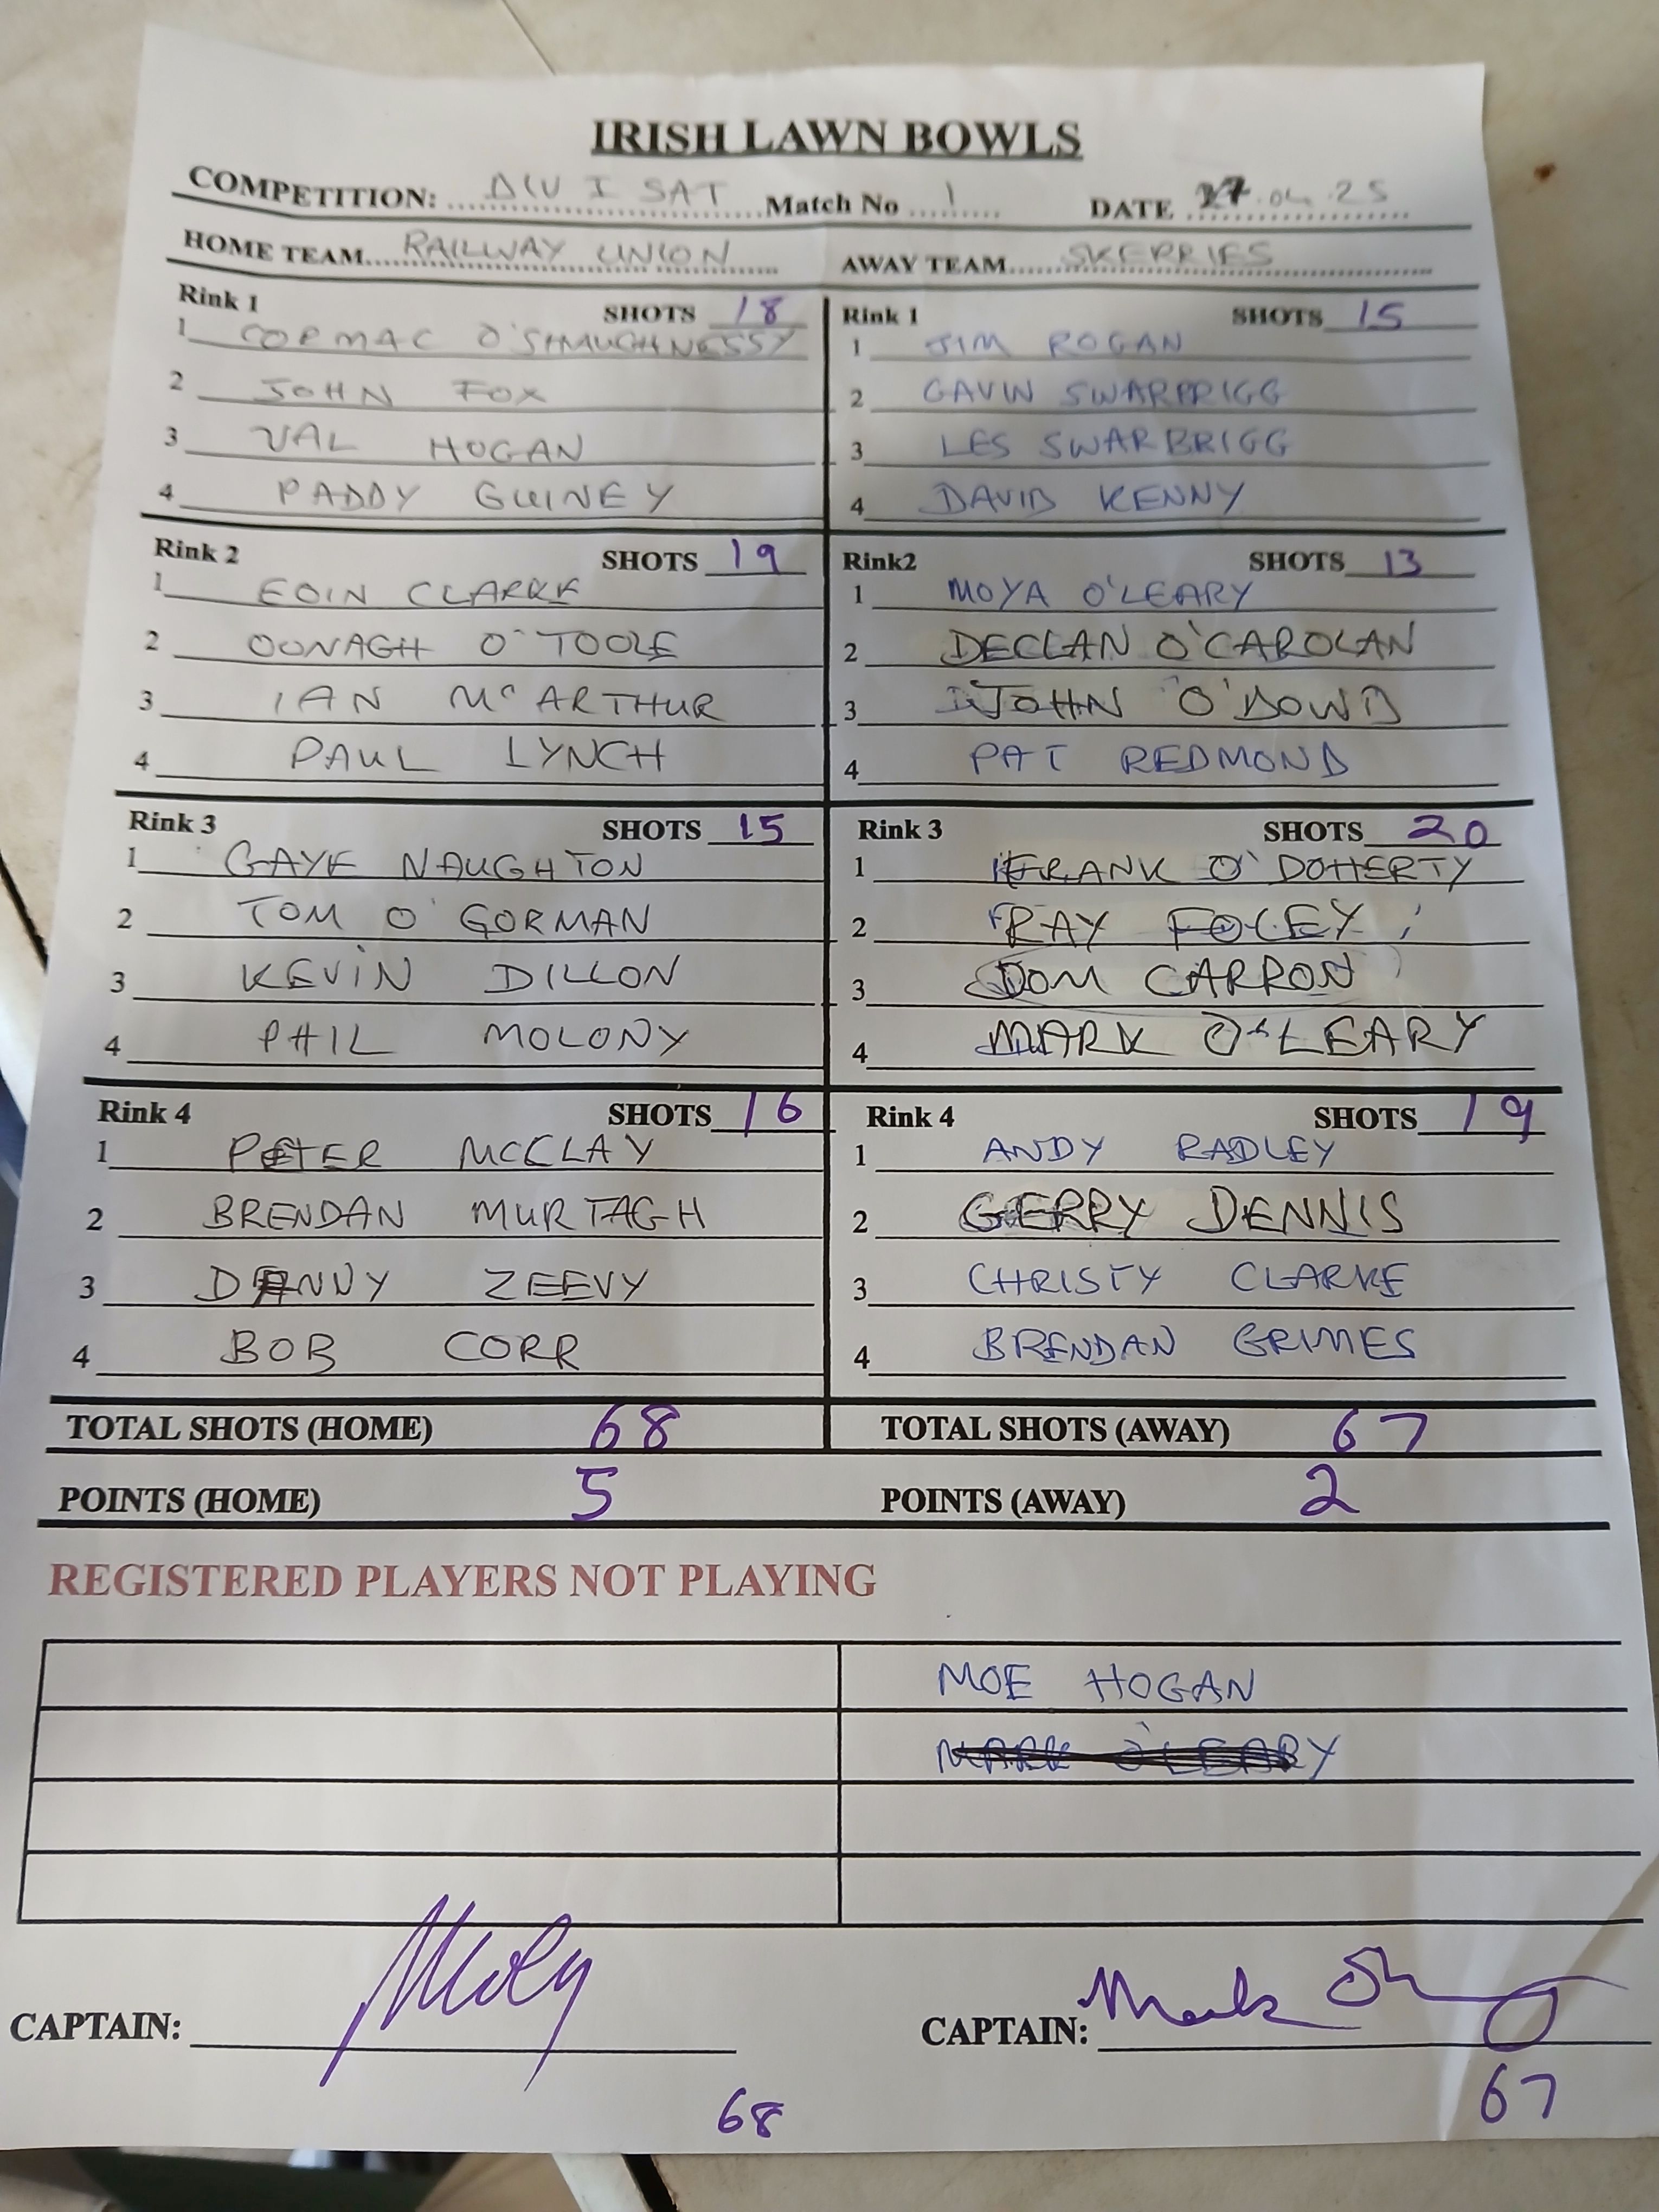 IRISH LAWN BOWLS
COMPETITION: DIV I SAT Match No 1 DATE 27.04.25
HOME TEAM RAILWAY UNION AWAY TEAM SKERRIES
Rink 1 SHOTS 18 Rink 1 SHOTS 15
1 CORMAC O'SHAUGHNESSY 1 JIM ROGAN
2 JOHN FOX 2 GAVIN SWARBRIGG
3 VAL HOGAN 3 LES SWARBRIGG
4 PADDY GUINEY 4 DAVID KENNY
Rink 2 SHOTS 19 Rink2 SHOTS 13
1 EOIN CLARKE 1 MOYA O'LEARY
2 OONAGH O'TOOLE 2 DECLAN O'CAROLAN
3 IAN McARTHUR 3 JOHN O'DOWD
4 PAUL LYNCH 4 PAT REDMOND
Rink 3 SHOTS 15 Rink 3 SHOTS 20
1 GAYE NAUGHTON 1 FRANK O'DOHERTY
2 TOM O'GORMAN 2 RAY FOLEY
3 KEVIN DILLON 3 DOM CARRON
4 PHIL MOLONY 4 MARK O'LEARY
Rink 4 SHOTS 16 Rink 4 SHOTS 19
1 PETER MCCLAY 1 ANDY RADLEY
2 BRENDAN MURTAGH 2 GERRY DENNIS
3 DANNY ZEEVY 3 CHRISTY CLARKE
4 BOB CORR 4 BRENDAN GRIMES
TOTAL SHOTS (HOME) 68 TOTAL SHOTS (AWAY) 67
POINTS (HOME) 5 POINTS (AWAY) 2
REGISTERED PLAYERS NOT PLAYING
MOE HOGAN
MARK O'LEARY
CAPTAIN: CAPTAIN: Mark
68 67